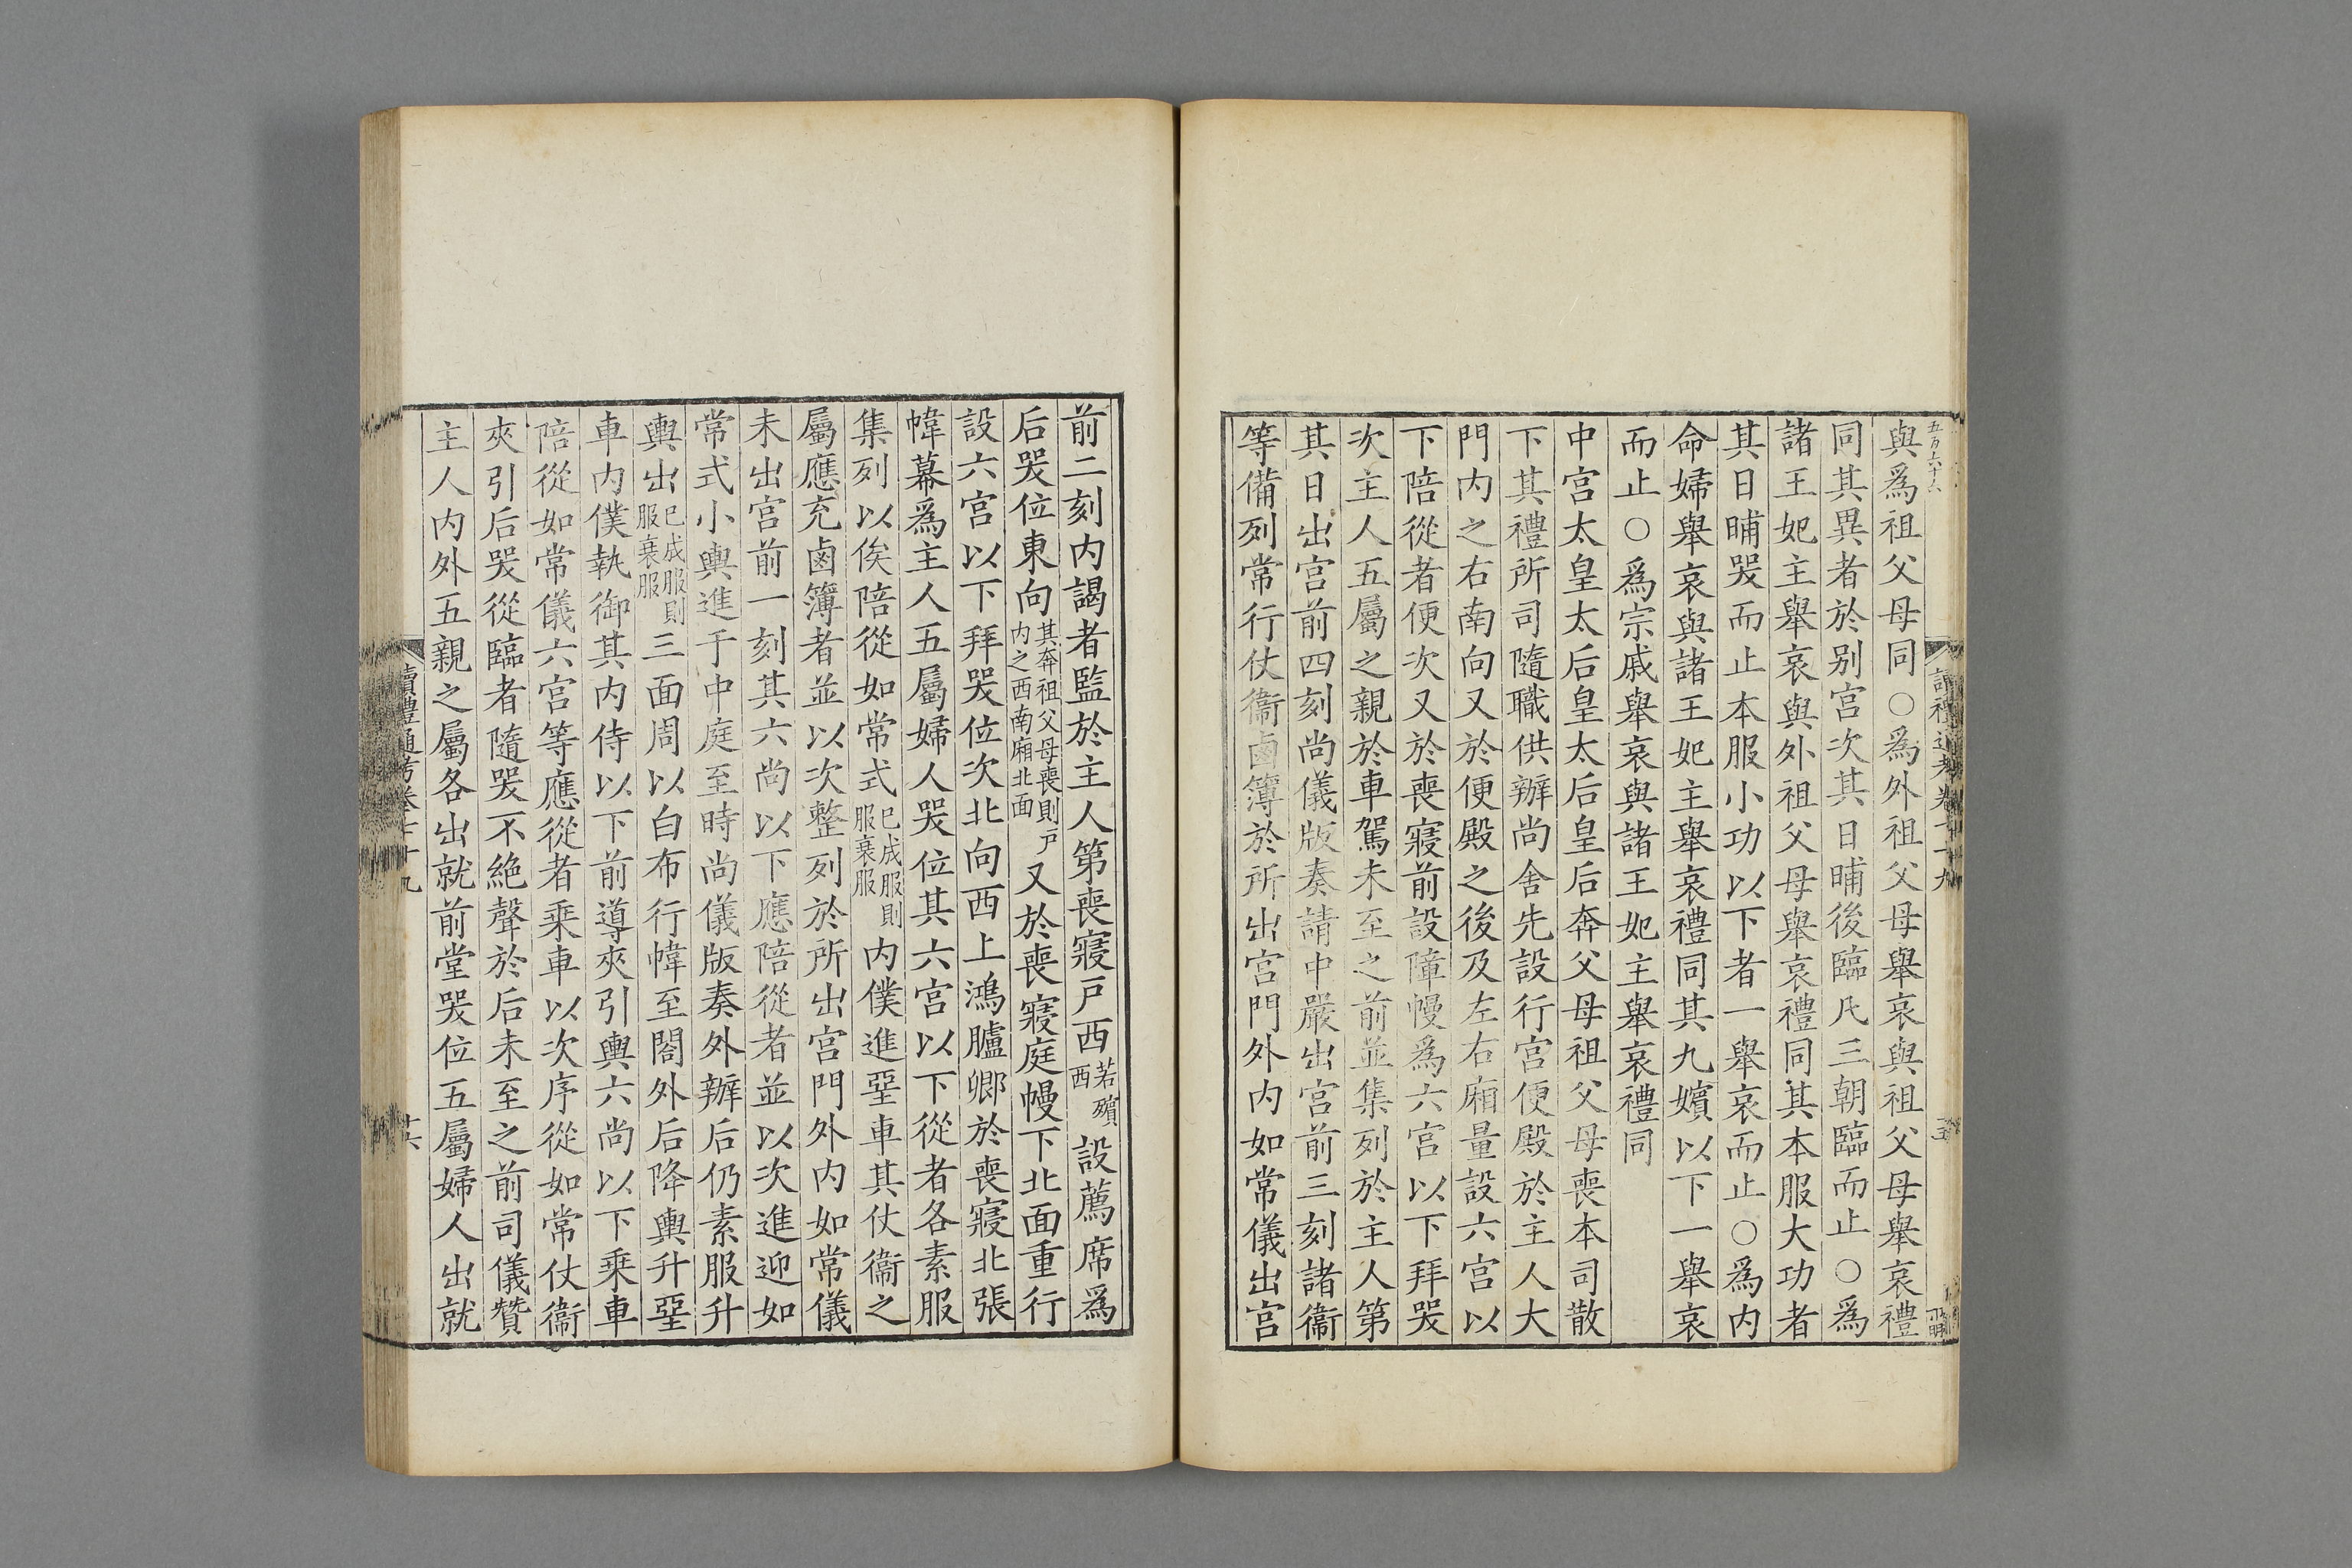 與爲祖父母同○爲外祖父母舉哀與祖父母舉哀禮
同其異者於别宫次其日晡後臨凡三朝臨而止○爲
諸王妃主舉哀與外祖父母舉哀禮同其本服大功者
其日晡哭而止本服小功以下者一舉哀而止○爲内
命婦舉哀與諸王妃主舉哀禮同其九嬪以下一舉哀
而止○爲宗戚舉哀與諸王妃主舉哀禮同
中宫太皇太后皇太后皇后奔父母祖父母喪本司散
下其禮所司隨職供辦尚舍先設行宫便殿於主人大
門内之右南向又於便殿之後及左右廂量設六宫以
下陪從者便次又於喪寢前設障幔爲六宫以下拜哭
次主人五屬之親於車駕未至之前並集列於主人第
其日出宫前四刻尚儀版奏請中嚴出宫前三刻諸衞
等備列常行仗衞鹵簿於所出宫門外内如常儀出宫
前二刻内謁者監於主人第喪寢戸西若殯西設薦席爲
后哭位東向其奔祖父母喪則戸内之西南廂北面又於喪寢庭幔下北面重行
設六宫以下拜哭位次北向西上鴻臚卿於喪寢北張
幃幕爲主人五屬婦人哭位其六宫以下從者各素服
集列以俟陪從如常式已成服則服衰服内僕進堊車其仗衞之
屬應充鹵簿者並以次整列於所出宫門外内如常儀
未出宫前一刻其六尚以下應陪從者並以次進迎如
常式小輿進于中庭至時尚儀版奏外辦后仍素服升
輿出已成服則服衰服三面周以白布行幃至閤外后降輿升堊
車内僕執御其内侍以下前導夾引輿六尚以下乗車
陪從如常儀六宫等應從者乗車以次序從如常仗衞
夾引后哭從臨者隨哭不絶聲於后未至之前司儀贊
主人内外五親之屬各出就前堂哭位五屬婦人出就
讀禮通考卷七十九
十六